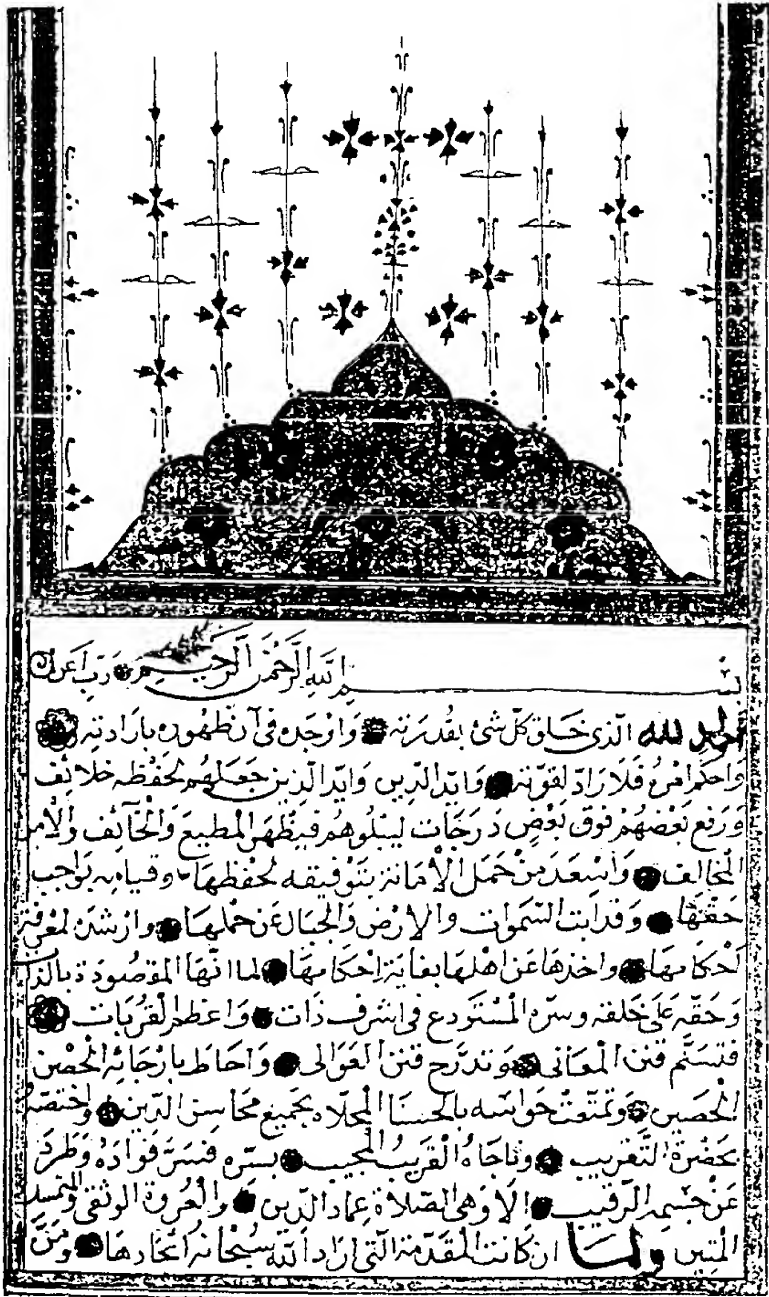 بسم الله الرحمن الرحيم رب اعن
الحمد لله الذي خلق كل شئ بقدرته واوجده في آن ظهوره بارادته
واحكم امره فلا راد لقوته وايد الدين وايد الذين جعلهم لحفظه خلائف
ورفع بعضهم فوق بعض درجات ليبلوهم فيظهر المطيع والخائف والامن
المخالف واسعد من حمل الأمانة بتوفيقه لحفظها وقيامه بواجب
حقها وقد ابت السموات والارض والجبال عن حملها وارشد لمعرفة
احكامها واخذها عن اهلها بغاية احكامها لما انها المقصودة بالذات
وحقه على خلقه وسره المستودع في اشرف ذات واعظم القربات
فتسنم قنن المعاني وتدرج قنن العوالي واحاط بارجائه الحصن
الحصين وتمتعت حواسه بالحسنا المجلاه بجميع محاسن الدين واختصه
بحضرة التقريب وناجاه القريب المجيب بسره فسر فواده وطرد
عن جسمه الرقيب الا وهي الصلاة عماد الدين والعروة الوثقى
المتين ولما ان كانت المقدمة التي اراد الله سبحانه اتحادها ومن